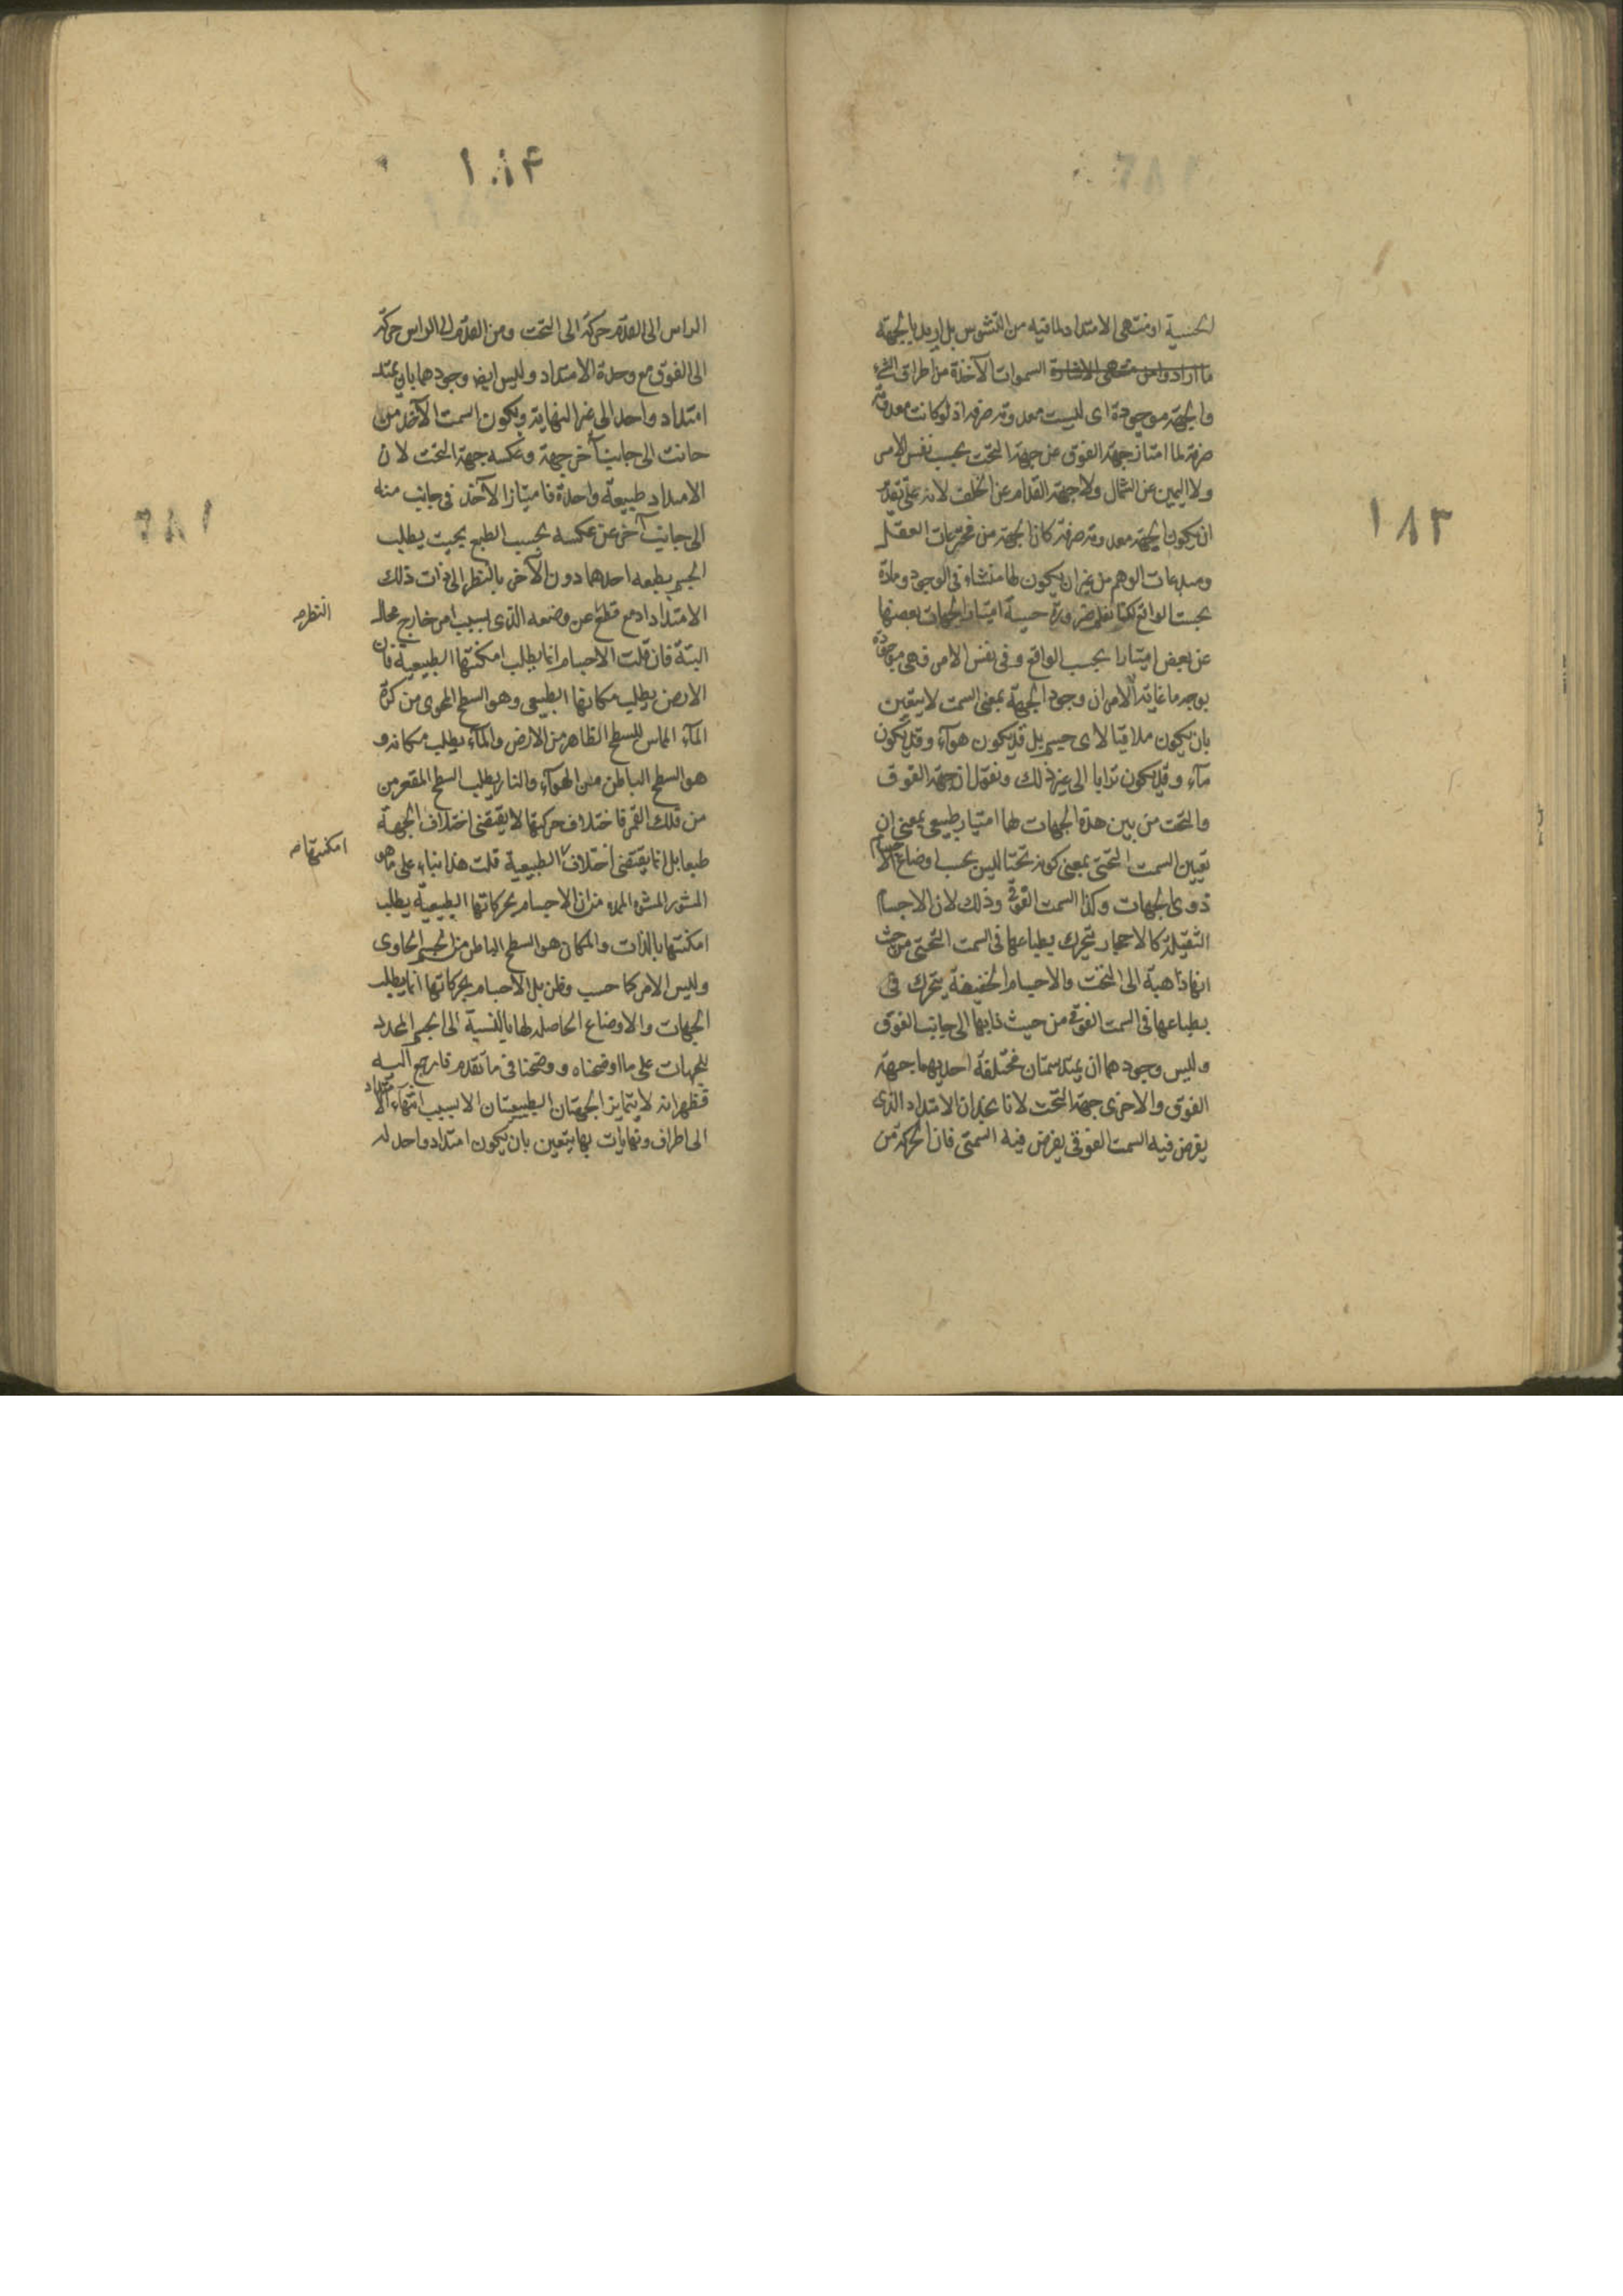 الحسية او منتهى الامتداد لما فيه من التشوس بل اريد بالجهة
ما ارادوا من منتهى الاشارة السموات الآخذة من اطراف الشئ
والجهة موجودة اى ليست معدومة صرفة اذ لو كانت معدومة
صرفة لما امتاز جهة الفوق عن جهة التحت بحسب نفس الامر
ولا اليمين عن الشمال ولا جهة القدام عن الخلف لانه على تقدير
ان يكون الجهة معدومة صرفة كان الجهة من مخترعات العقل
ومبدعات الوهم من غير ان يكون لها منشاء فى الوجود ومادة
بحسب الواقع لكنا نعلم ضرورة حسية امتياز الجهات بعضها
عن بعض امتيازا بحسب الواقع وفى نفس الامر فهى موجودة
بوجه ما غاية الامر ان وجود الجهة بمعنى السمت لا يتعين
بان يكون ملاقيا لاى جسم بل قد يكون هوآء وقد يكون
مآء وقد يكون ترابا الى غير ذلك ونقول ان جهة الفوق
والتحت من بين هذه الجهات لهما امتياز طبيعى بمعنى ان
تعيين السمت التحتى بمعنى كونه تحتا ليس بحسب اوضاع الاجسام
ذوى الجهات وكذا السمت الفوقى وذلك لان الاجسام
الثقيلة كالاحجار يتحرك بطباعها فى السمت التحتى من حيث
انها ذاهبة الى التحت والاجسام الخفيفة يتحرك فى
بطباعها فى السمت الفوقى من حيث ذابها الى جانب الفوق
وليس وجودهما ان يمتد سمتان مختلفة احديهما جهة
الفوق والاخرى جهة التحت لانا نجد ان الامتداد الذى
يفرض فيه السمت الفوقى يفرض فيه السمتى فان الحركة من
١٨٣
١٠١۴
الراس الى القدم حركة الى التحت ومن القدم الى الراس حركة
الى الفوق مع وحدة الامتداد وليس ايضا وجودهما بان يمتد
امتداد واحد الى غير النهاية ويكون السمت الآخذ من
جانب الى جانب آخر جهة وعكسه جهة التحت لان
الامتداد طبيعة واحدة فامتياز الآخذ فى جانب منه
الى جانب آخر عن عكسه بحسب الطبع بحيث يطلب
الجسم بطبعه احدهما دون الآخر بالنظر الى ذات ذلك
الامتداد مع قطع عن وضعه الذى بسبب امر خارج محال
النظر صح
البتة فان قلت الاجسام انما يطلب امكنتها الطبيعية فان
الارض يطلب مكانها الطبيعى وهو السطح المحوى من كرة
المآء المماس للسطح الظاهر من الارض والمآء يطلب مكانه و
هو السطح الباطن من الهوآء والنار يطلب السطح المقعر من
من فلك القمر فاختلاف حركتها لا يقتضى اختلاف الجهة
طبعا بل انما يقتضى اختلاف الطبيعية قلت هذا بناء على ما هو
امكنتها صح
المشهور من ان الاجسام بحركاتها الطبيعية يطلب
امكنتها بالذات والمكان هو السطح الباطن من الجسم الحاوى
وليس الامر كما حسب وظن بل الاجسام بحركاتها انما يطلب
الجهات والاوضاع الحاصلة لها بالنسبة الى الجسم المحدد
للجهات على ما اوضحناه ووضحنا فى ما تقدم فارجع اليه
فظهر انه لا يتمايز الجهتان الطبيعتان الا بسبب انتهاء الامتداد
الى اطراف ونهايات بها يتعين بان يكون امتداد واحد له